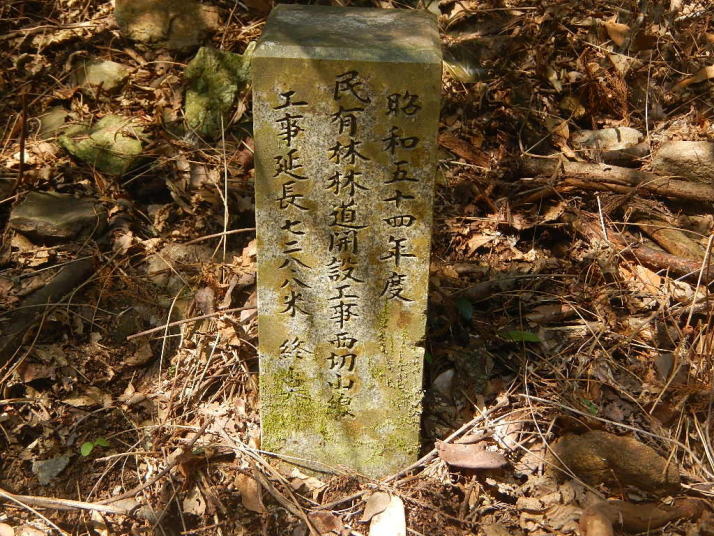 昭和五十四年度
民有林林道開設工事西切山線
工事延長七三八八米 終点